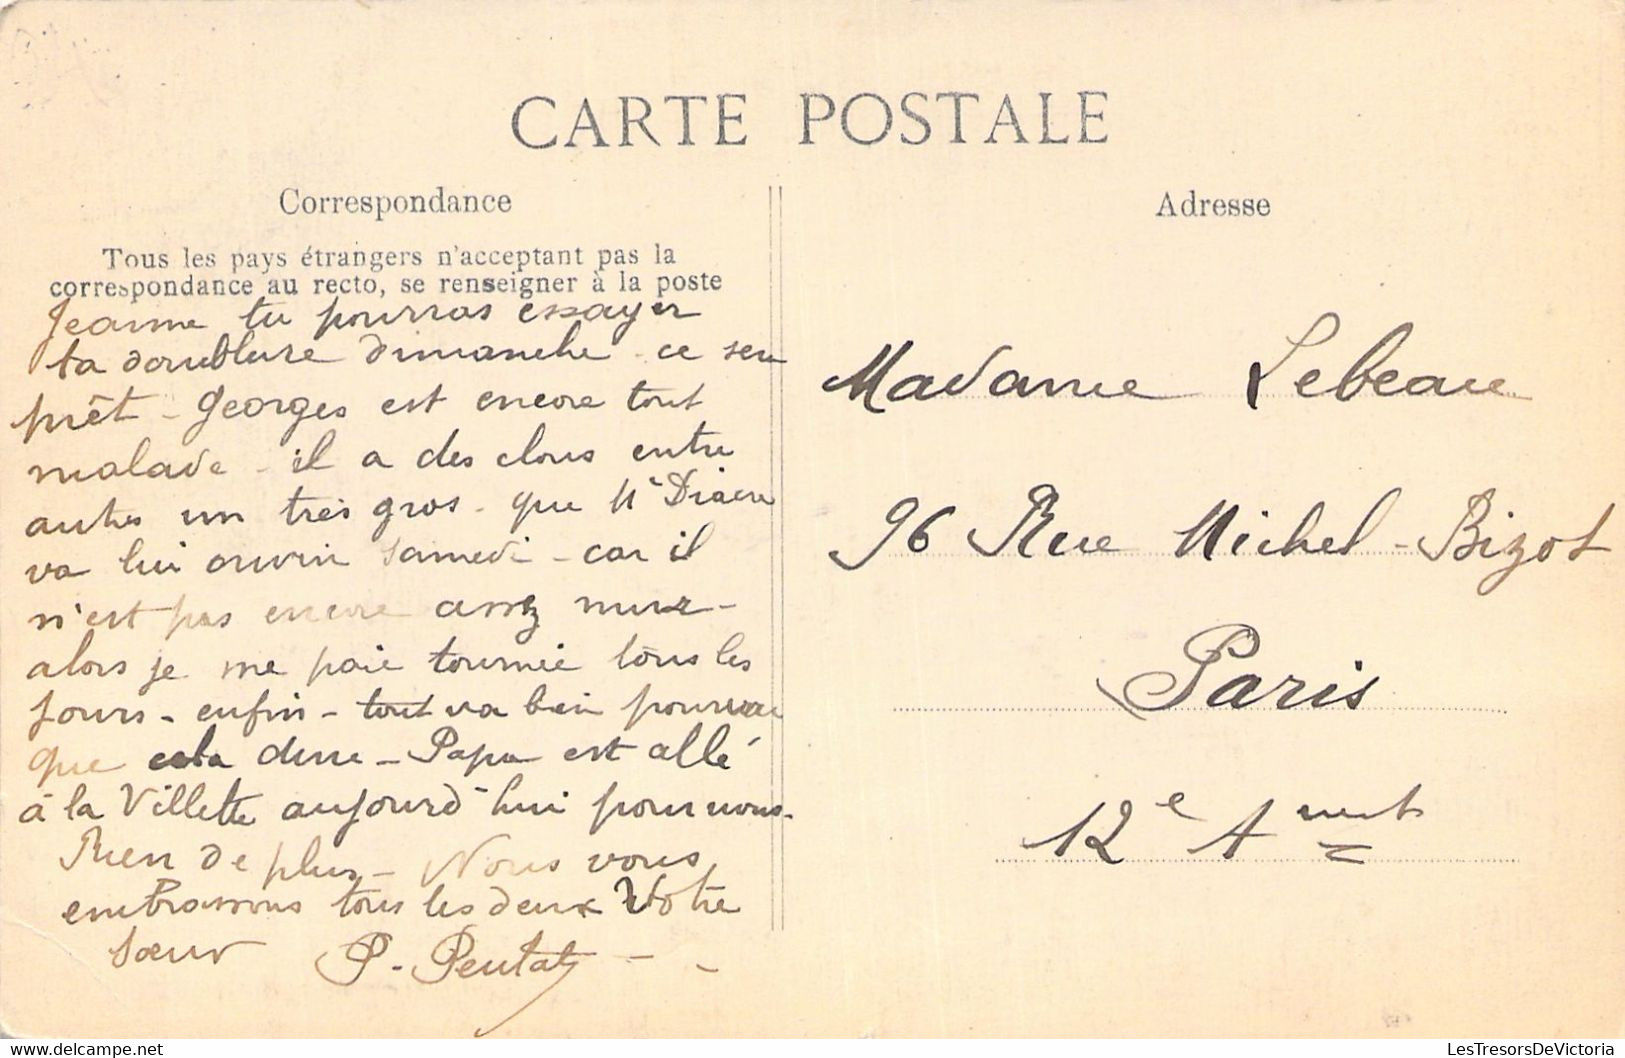 CARTE POSTALE
Correspondance
Tous les pays étrangers n'acceptant pas la
correspondance au recto, se renseigner à la poste
Jeanne tu pourras essayer
ta doublure dimanche - ce sera
prêt - Georges est encore tout
malade - il a des clous entre
autres un très gros - que Mr
va lui ouvrir samedi - car il
n'est pas encore assez mur -
alors je me paie tournée tous les
jours - enfin - tout va bien pourvu
que cela dure - Papa est allé
à la Villette aujourd'hui pour vous.
Rien de plus - Nous vous
embrassons tous les deux Votre
sœur P. Pentat
Adresse
Madame Lebeau
96 Rue Michel-Bizot
Paris
12e Arrnt
LesTresorsDeVictoria